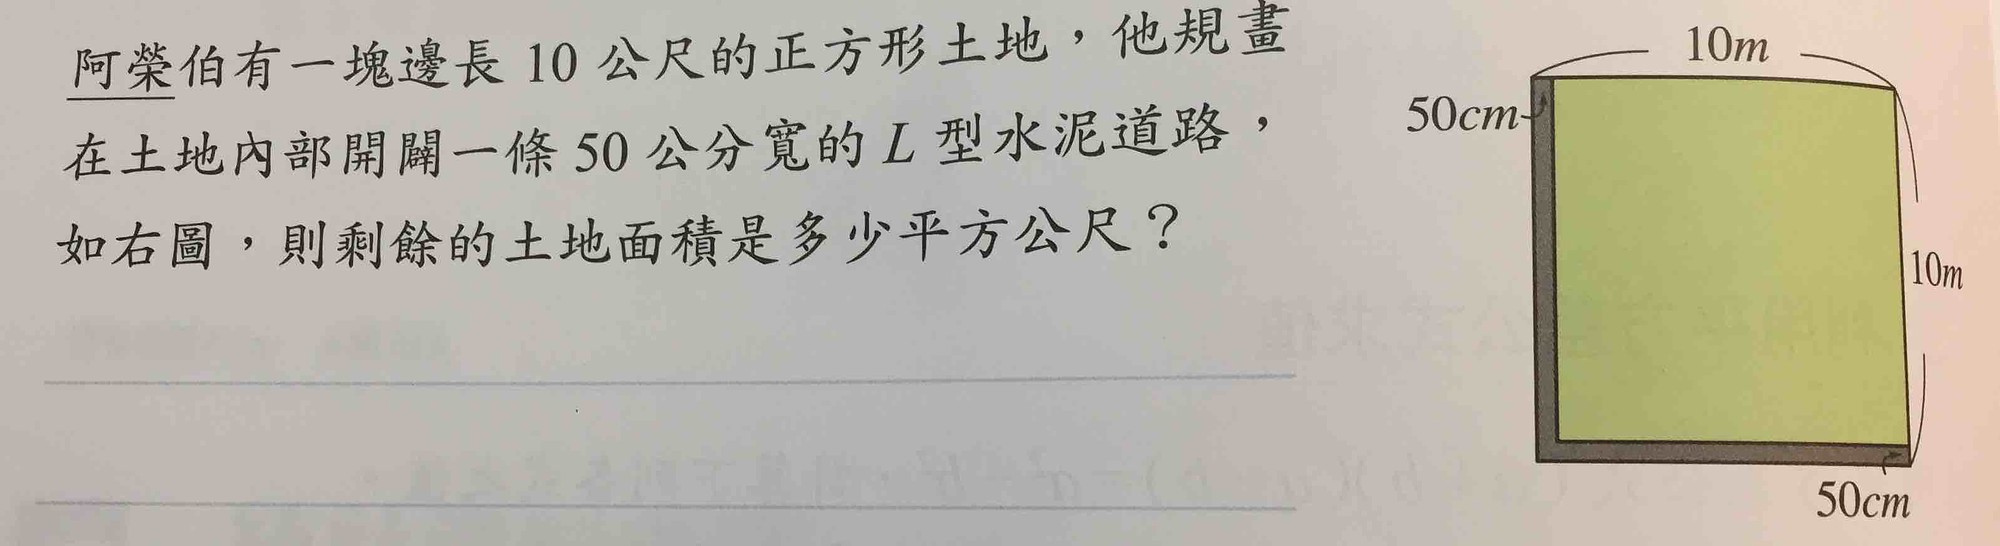 阿榮伯有一塊邊長 10 公尺的正方形土地，他規畫
在土地內部開闢一條 50 公分寬的 L 型水泥道路，
如右圖，則剩餘的土地面積是多少平方公尺？
10m
50cm
10m
50cm